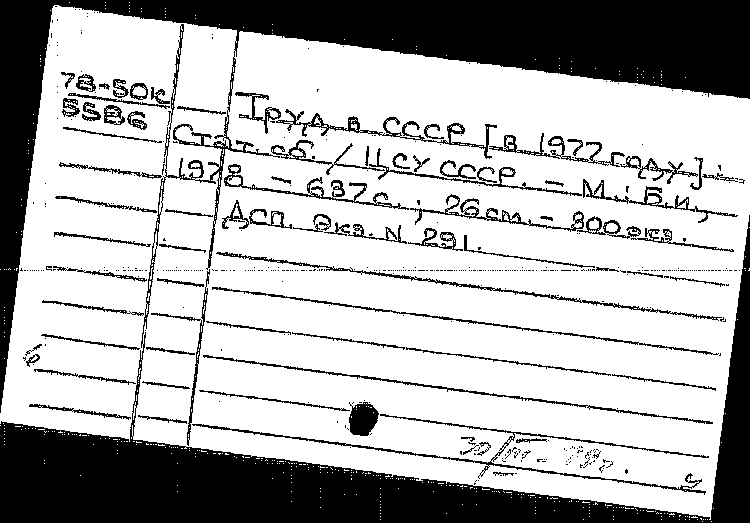 78-50к
5586
Труд в СССР [в 1977 году] :
Стат. сб. / ЦСУ СССР. – М.: Б.и.,
1978. – 637 с. ; 26 см. – 800 экз.
ДСП. Экз. N 291.
б
30/III-79г.